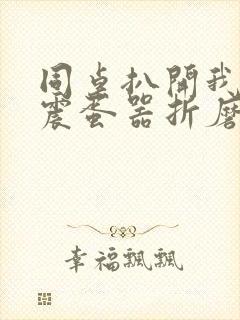 同桌扒開我
震蛋器折磨
幸福飄飄